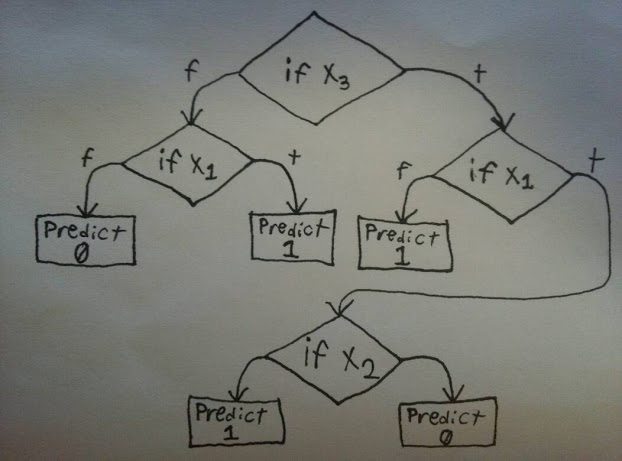 if X3
f
t
if X1
f
t
if X1
f
t
Predict
0
Predict
1
Predict
1
if X2
Predict
1
Predict
0